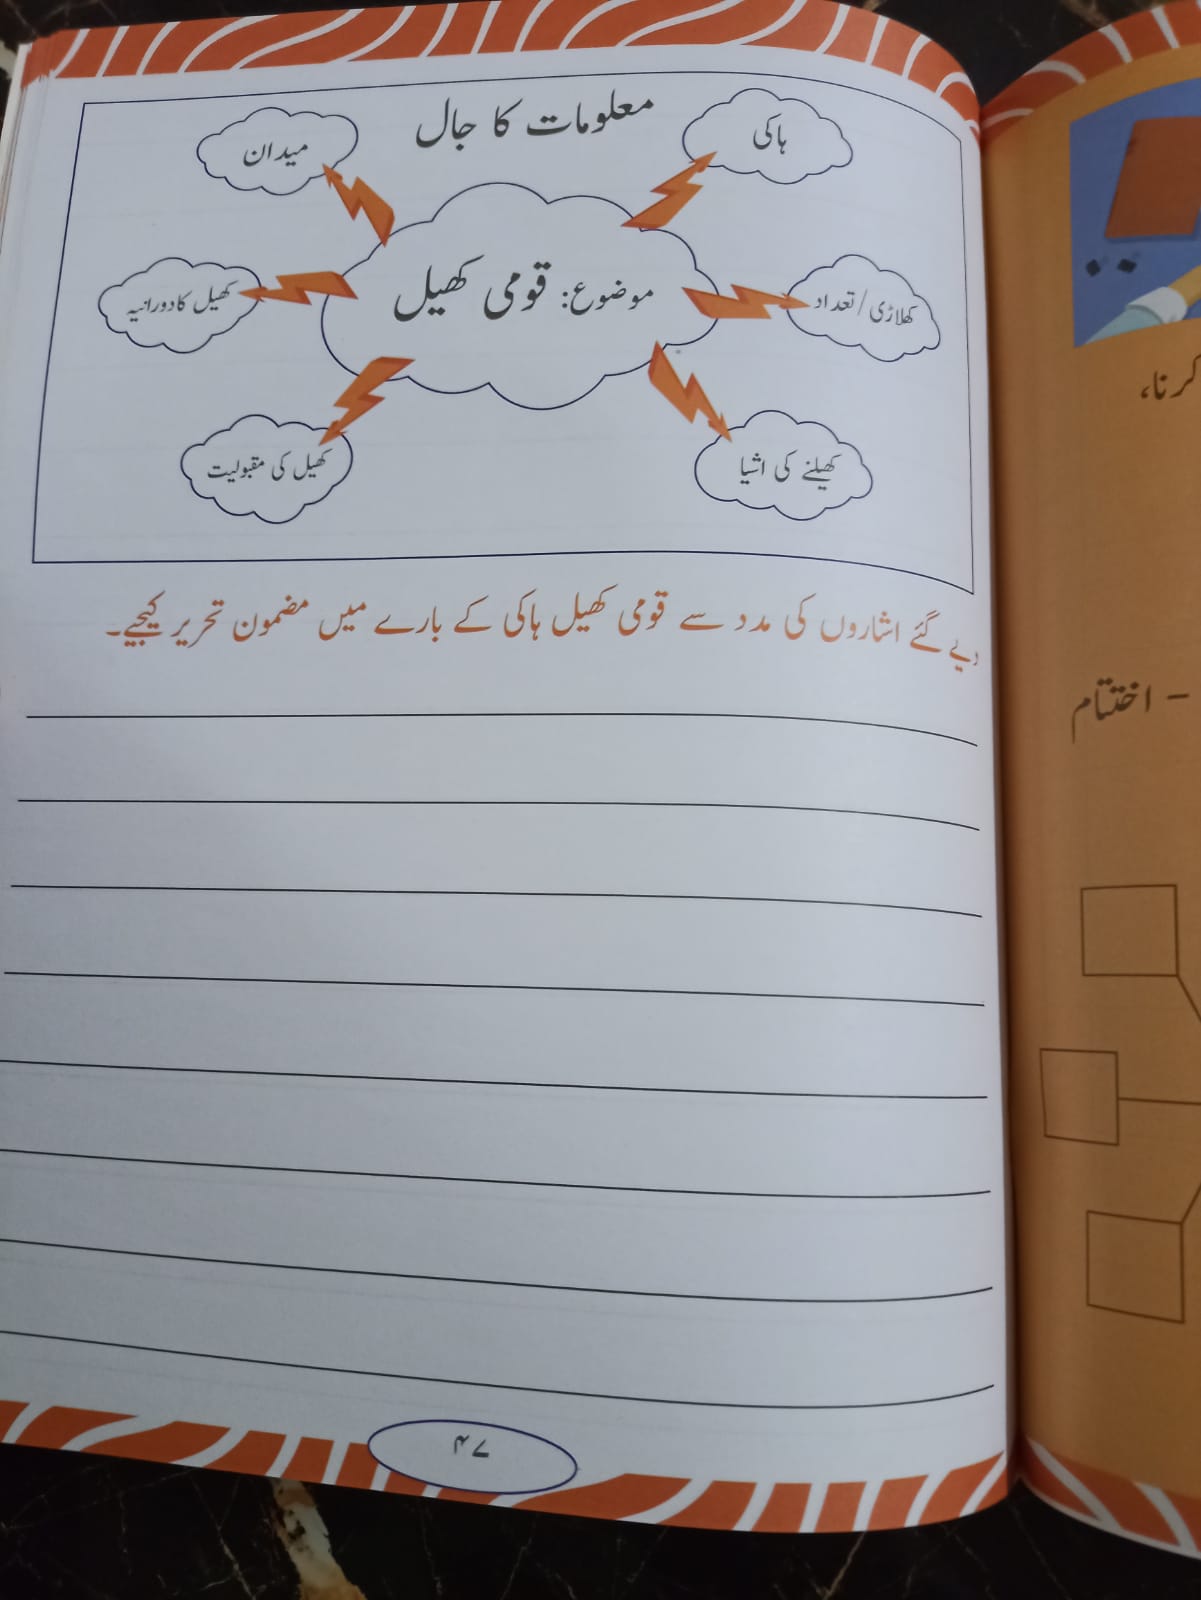 معلومات کا جال
ہاکی
میدان
موضوع: قومی کھیل
کھلاڑی/تعداد
کھیل کا دورانیہ
کھیلنے کی اشیا
کھیل کی مقبولیت
دیے گئے اشاروں کی مدد سے قومی کھیل ہاکی کے بارے میں مضمون تحریر کیجیے۔
۴۷
کرنا،
- اختتام